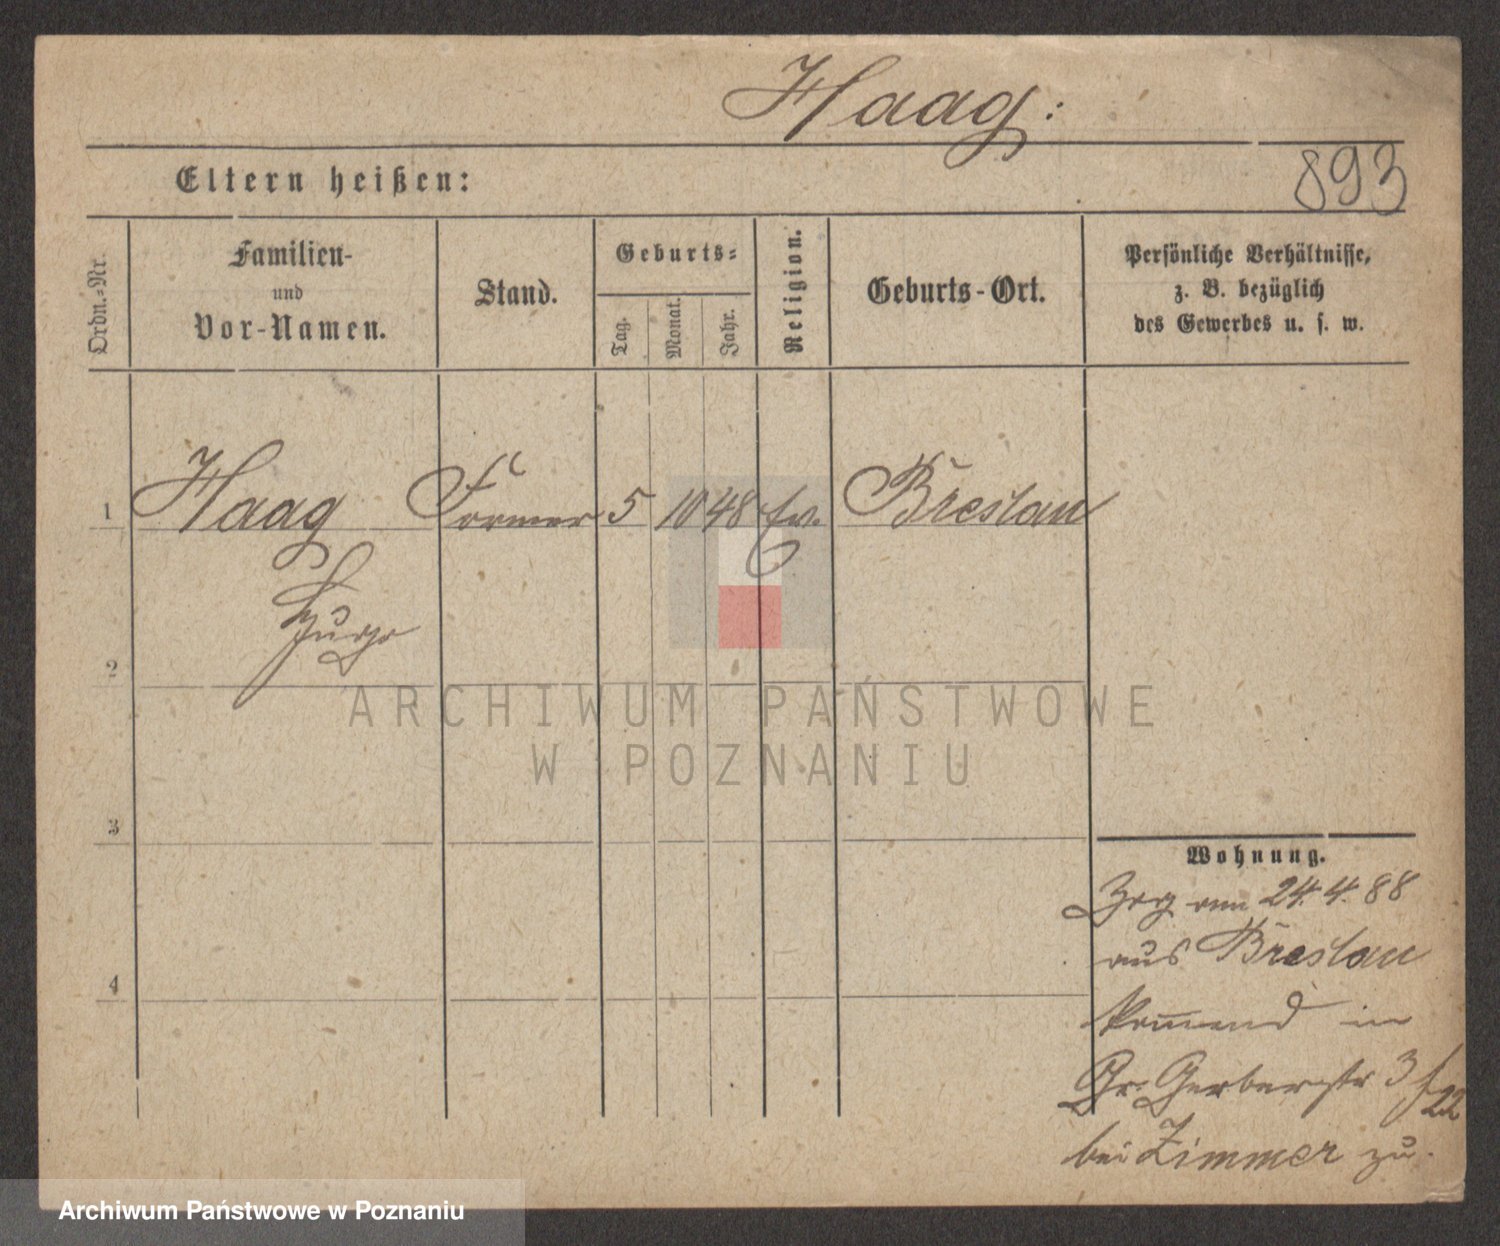 Haag:
893
Eltern heißen:
Ordn.-Nr.
Familien-
und
Vor-Namen.
Stand.
Geburts-
Tag.
Monat.
Jahr.
Religion.
Geburts-Ort.
Persönliche Verhältnisse,
z. B. bezüglich
des Gewerbes u. s. w.
1 Haag Former 5 10 48 Ev. Breslau
Hugo
2
3
4
Wohnung.
Zzg am 24.4.88
aus Breslau
kom̄end in
Gr. Gerberstr 3 / 22
bei Zimmer zu.
ARCHIWUM PAŃSTWOWE
W POZNANIU
Archiwum Państwowe w Poznaniu